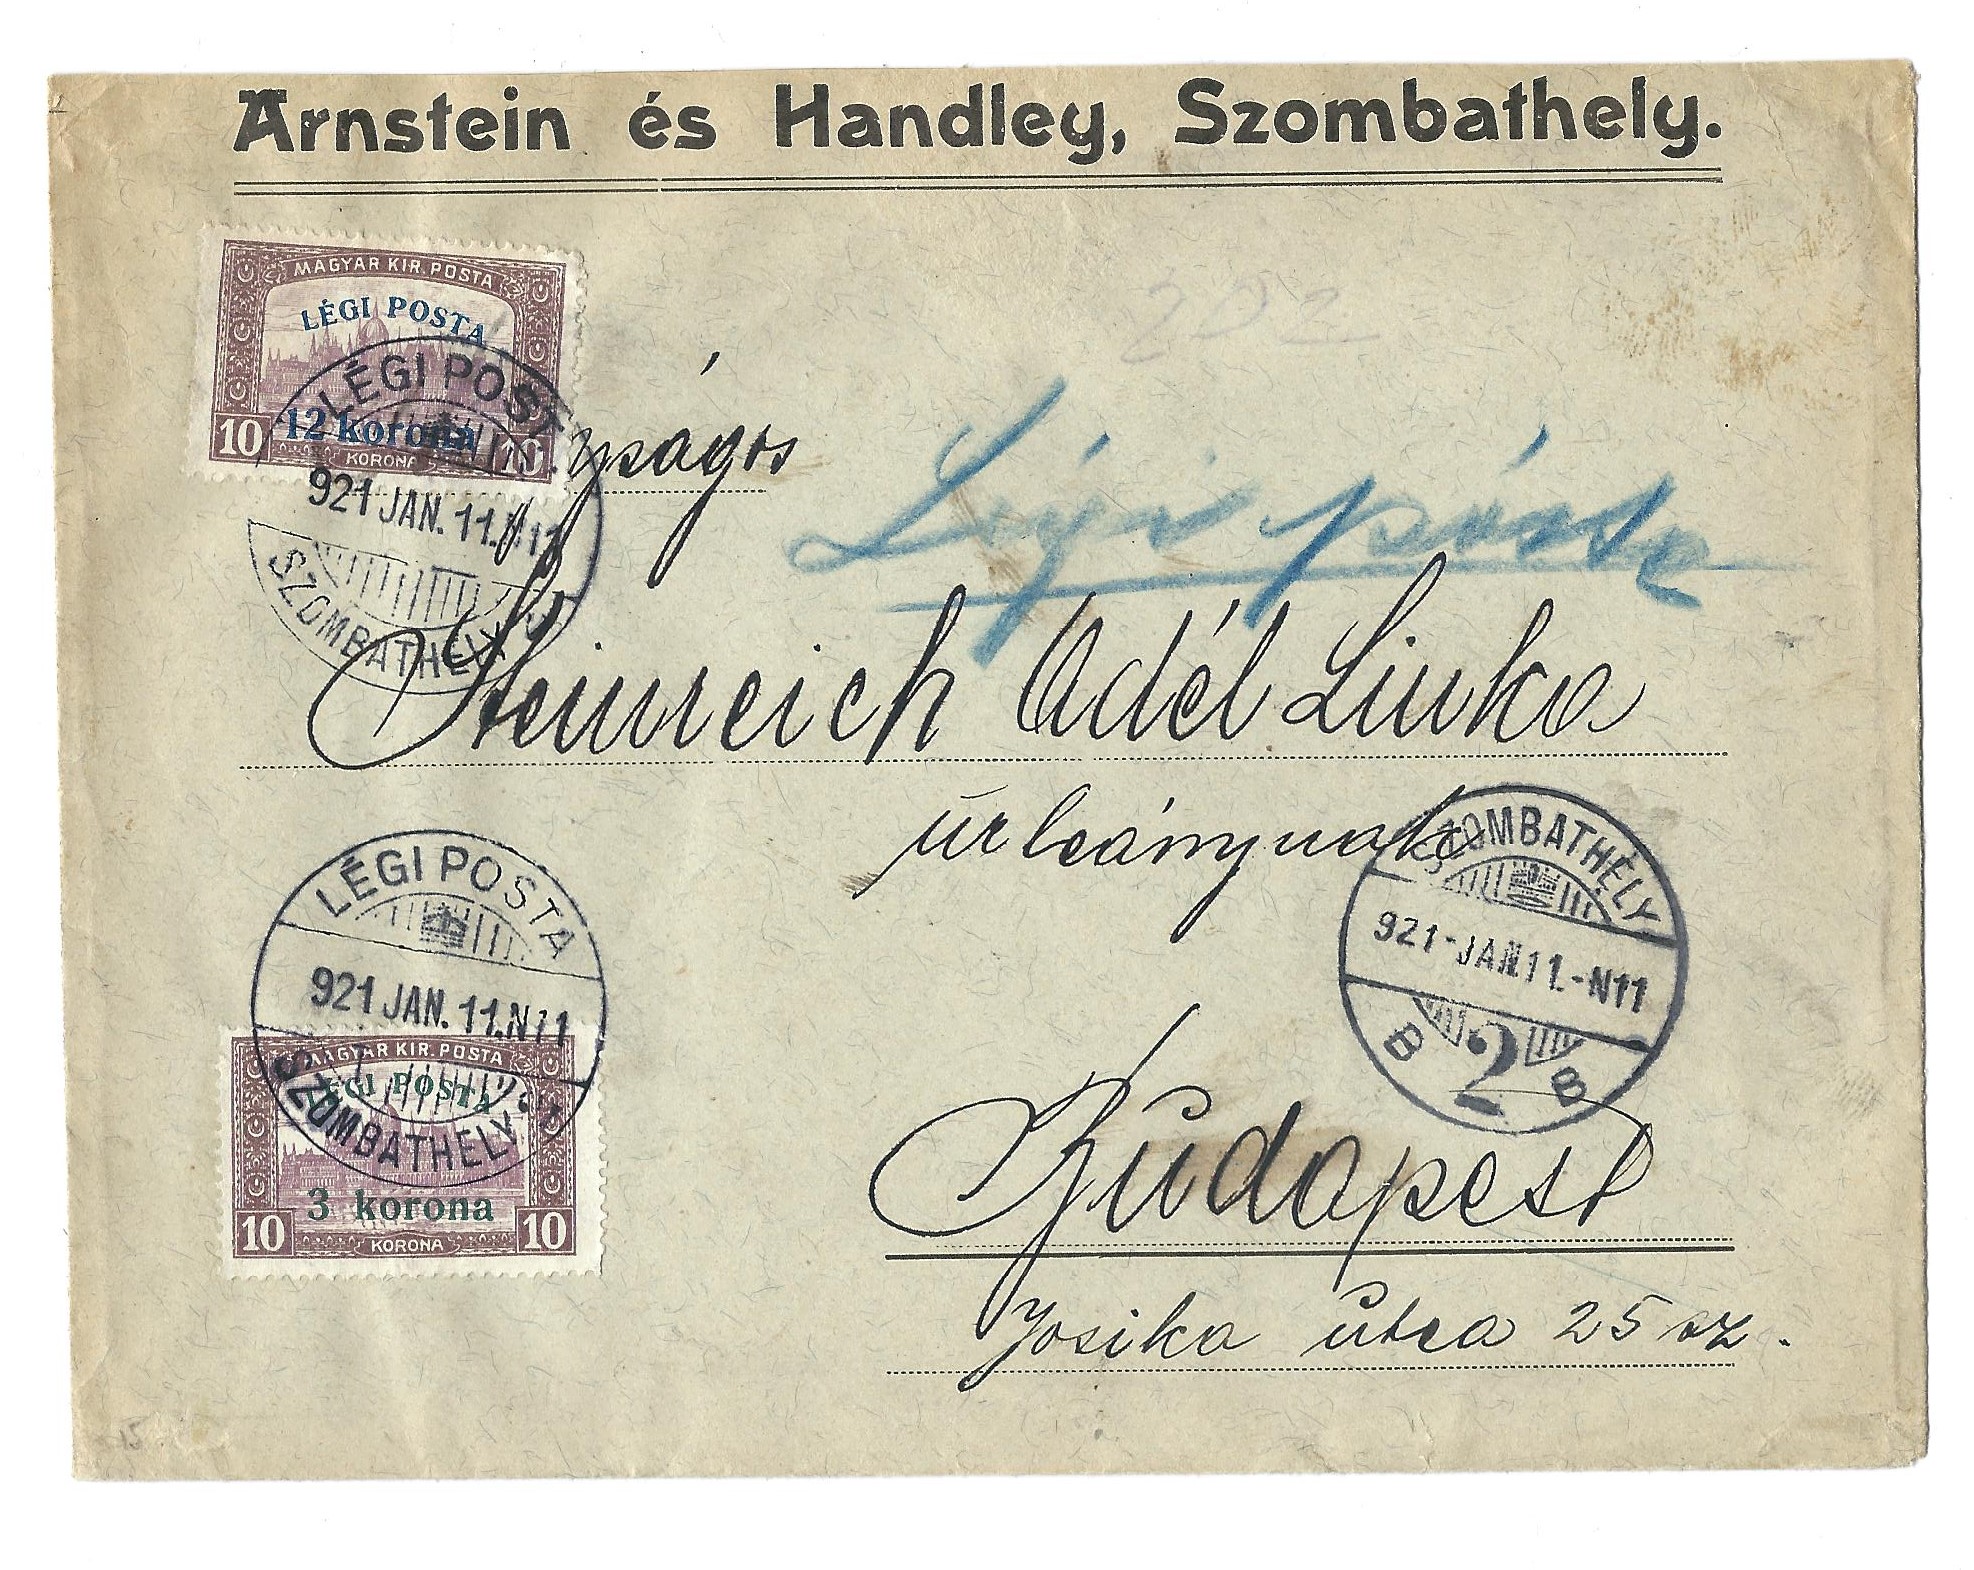 Arnstein és Handley, Szombathely.
MAGYAR KIR. POSTA
LÉGI POSTA
12 korona
10 10
KORONA
LÉGI POST
921 JAN. 11.N11
SZOMBATHELY
Légi pósta
Steinreich Adél Linka
úrleánynak
SZOMBATHELY
921-JAN.11.-N11
B 2 B
LÉGI POSTA
921 JAN. 11.N11
SZOMBATHELY
MAGYAR KIR. POSTA
LÉGI POSTA
3 korona
10 10
KORONA
Budapest
Josika útca 25 sz.